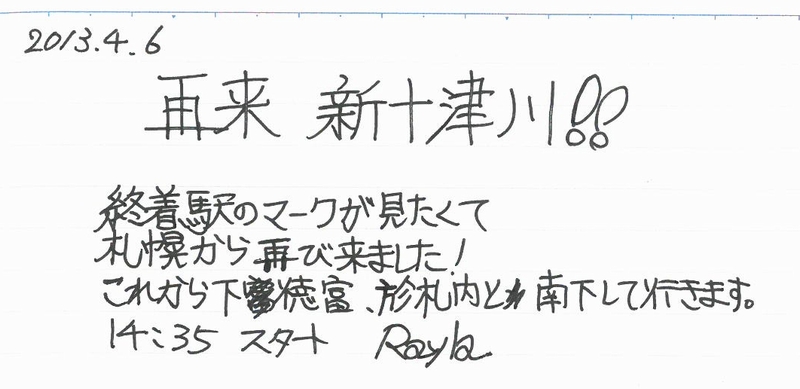 2013.4.6
再来 新十津川!!
終着駅のマークが見たくて
札幌から再び来ました!
これから下徳富、於札内と南下して行きます。
14:35 スタート Rayla